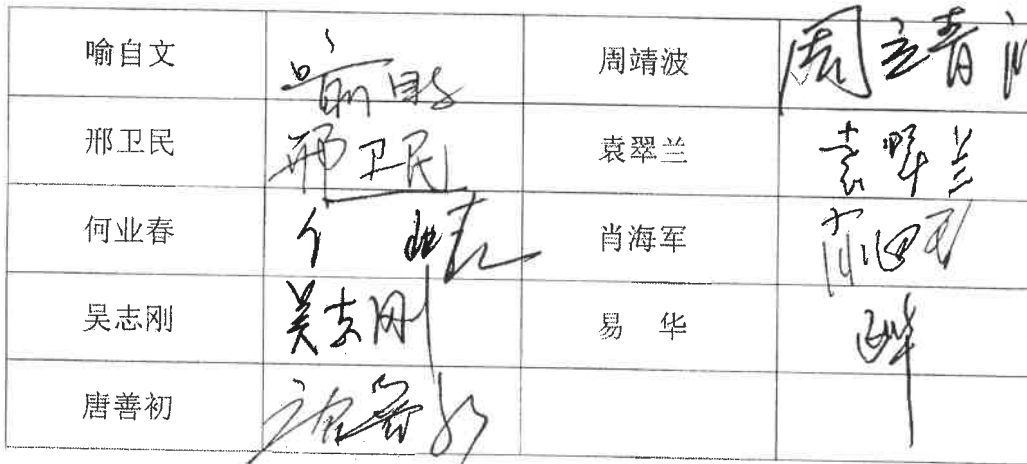 喻自文 喻自文 周靖波 周靖波
邢卫民 邢卫民 袁翠兰 袁翠兰
何业春 何业春 肖海军 肖海军
吴志刚 吴志刚 易 华 易华
唐善初 唐善初